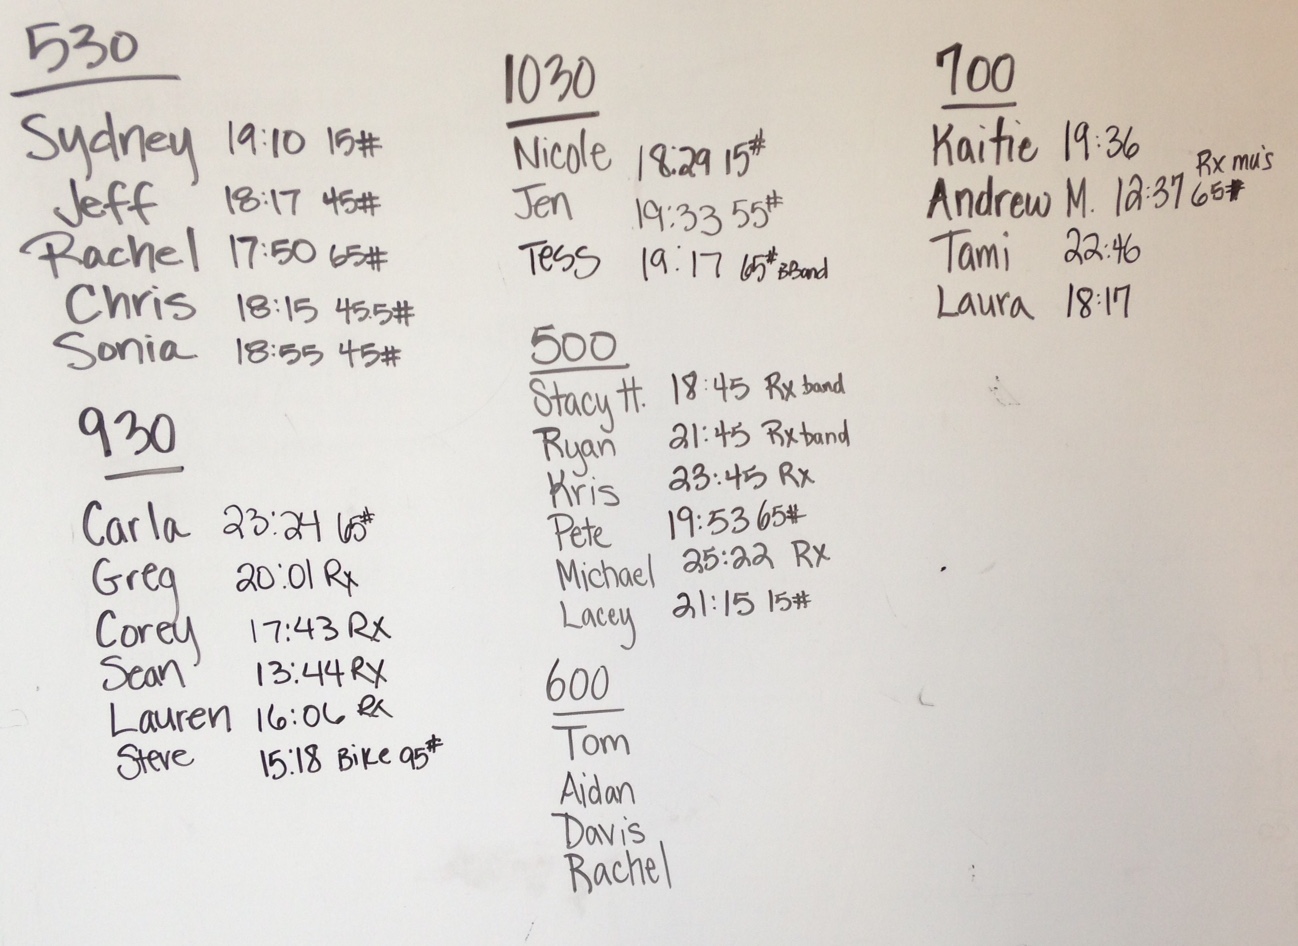 530
Sydney 19:10 15#
Jeff 18:17 45#
Rachel 17:50 65#
Chris 18:15 45.5#
Sonia 18:55 45#
930
Carla 23:24 65#
Greg 20:01 Rx
Corey 17:43 Rx
Sean 13:44 Rx
Lauren 16:06 Rx
Steve 15:18 Bike 95#
1030
Nicole 18:29 15#
Jen 19:33 55#
Tess 19:17 65# BBand
500
Stacy H. 18:45 Rx band
Ryan 21:45 Rx band
Kris 23:45 Rx
Pete 19:53 65#
Michael 25:22 Rx
Lacey 21:15 15#
600
Tom
Aidan
Davis
Rachel
700
Kaitie 19:36
Rx mu's
Andrew M. 12:37 65#
Tami 22:46
Laura 18:17